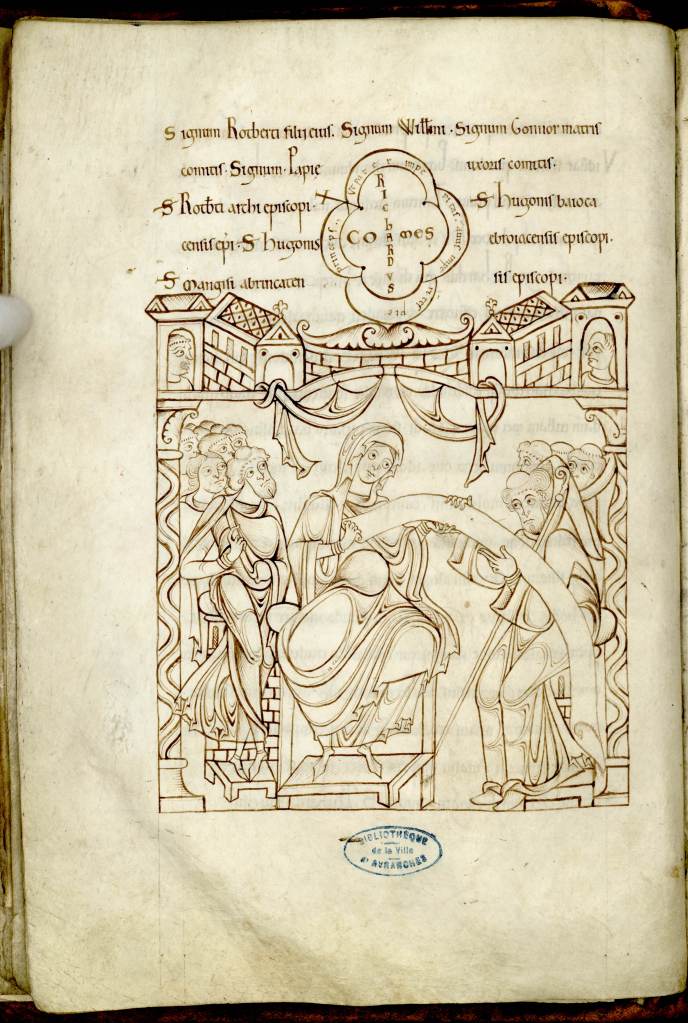 Signum Rotberti filii eius. Signum Willmi. Signum Gonnor matris
comitis. Signum. Papie uxoris comitis.
S Rotb̄ti archi episcopi. S Hugonis baioca
censis ep̄i. S Hugonis ebroiacensis episcopi.
S Mangisi abrincaten sis episcopi.
RICHARDUS
COMES
princeps
BIBLIOTHÈQUE
de la Ville
D'AVRANCHES